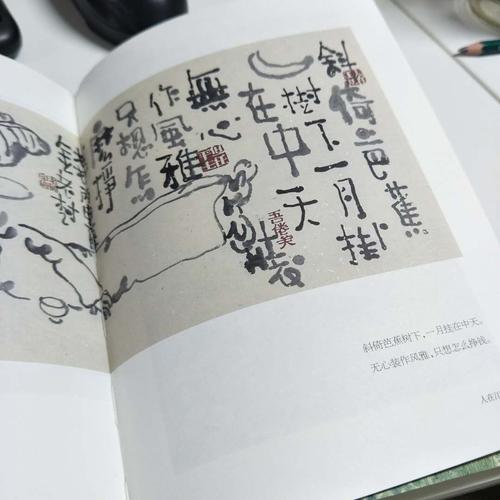 斜倚芭蕉
樹下一月掛
在中天
無心裝
作風雅
只想怎
麼掙
斜倚芭蕉树下,一月挂在中天。
无心装作风雅,只想怎么挣钱。
人在江